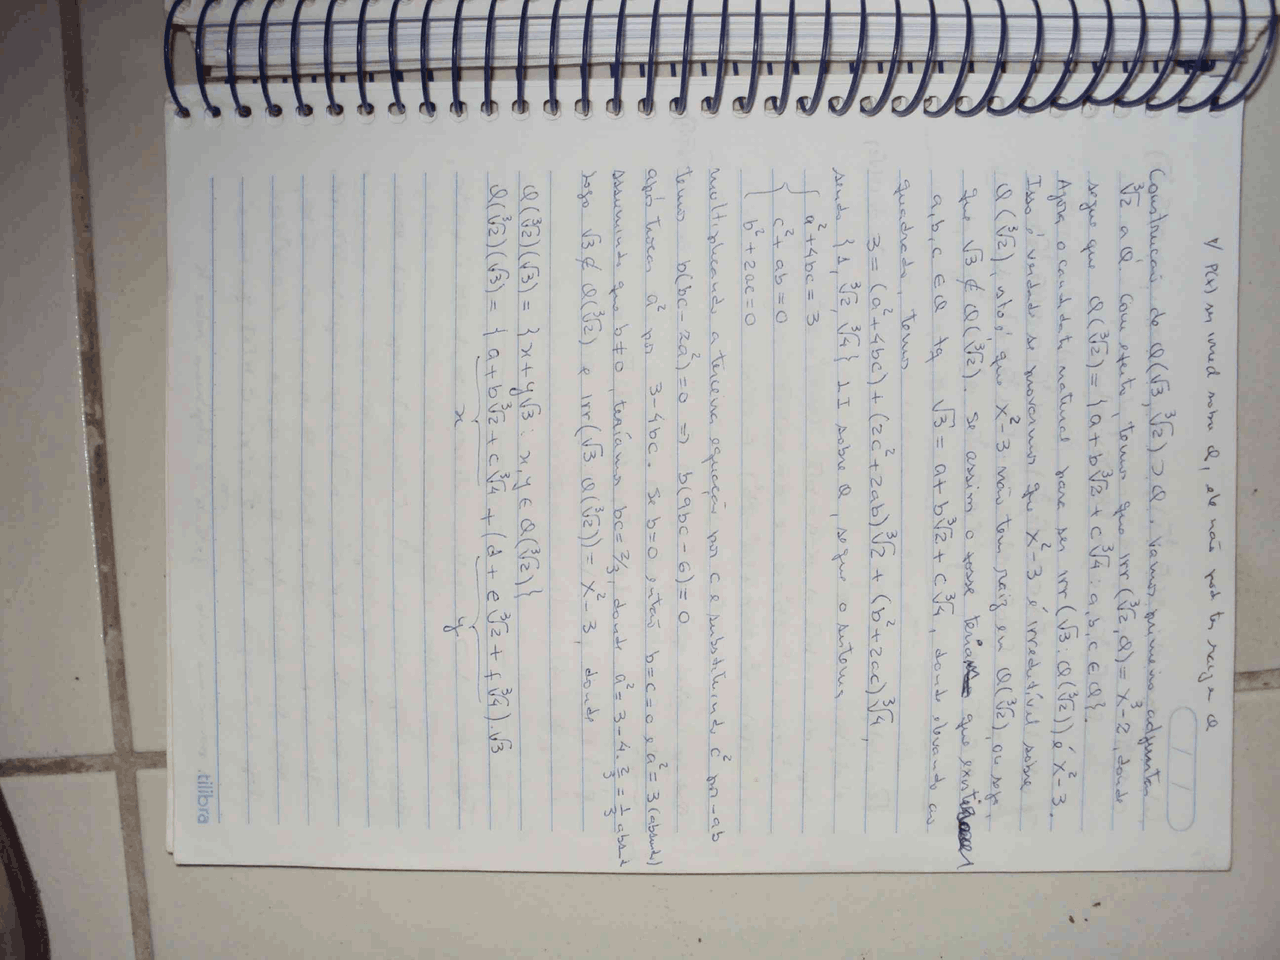 ∀ P(x) mimod sobre Q, ele não pode ter raiz em Q
Construção do Q(√3, ∛2) ⊃ Q. Vamos, primeiro, adjuntar
∛2 a Q. Com efeito, temos que irr(∛2, Q) = x³-2, donde
segue que Q(∛2) = {a+b∛2+c∛4 : a,b,c ∈ Q}.
Agora o candidato natural para ser irr(√3 : Q(∛2)) é x²-3.
Isso é verdade se provarmos que x²-3 é irredutível sobre
Q(∛2), isto é, que x²-3 não tem raiz em Q(∛2), ou seja,
que √3 ∉ Q(∛2). Se assim o fosse teria que existir
a,b,c ∈ Q tq √3 = a+b∛2+c∛4, donde elevando ao
quadrado, temos
3 = (a²+4bc) + (2c²+2ab)∛2 + (b²+2ac)∛4,
sendo {1, ∛2, ∛4} LI sobre Q, segue o sistema
{ a²+4bc=3
c²+ab=0
{ b²+2ac=0
multiplicando a terceira equação por c e substituindo c² por -ab
temos b(bc-2a²)=0 ⇒ b(9bc-6)=0
após trocar a² por 3-4bc. Se b=0 então b=c=0 e a²=3 (absurdo)
assumindo que b≠0, teríamos bc=2/3, donde a²=3-4.2/3=1/3 absurd
logo √3 ∉ Q(∛2) e irr(√3 Q(∛2)) = x²-3, donde
Q(∛2)(√3) = {x+y√3 : x,y ∈ Q(∛2)}
Q(∛2)(√3) = {a+b∛2+c∛4 + (d+e∛2+f∛4).√3
x y
tilibra